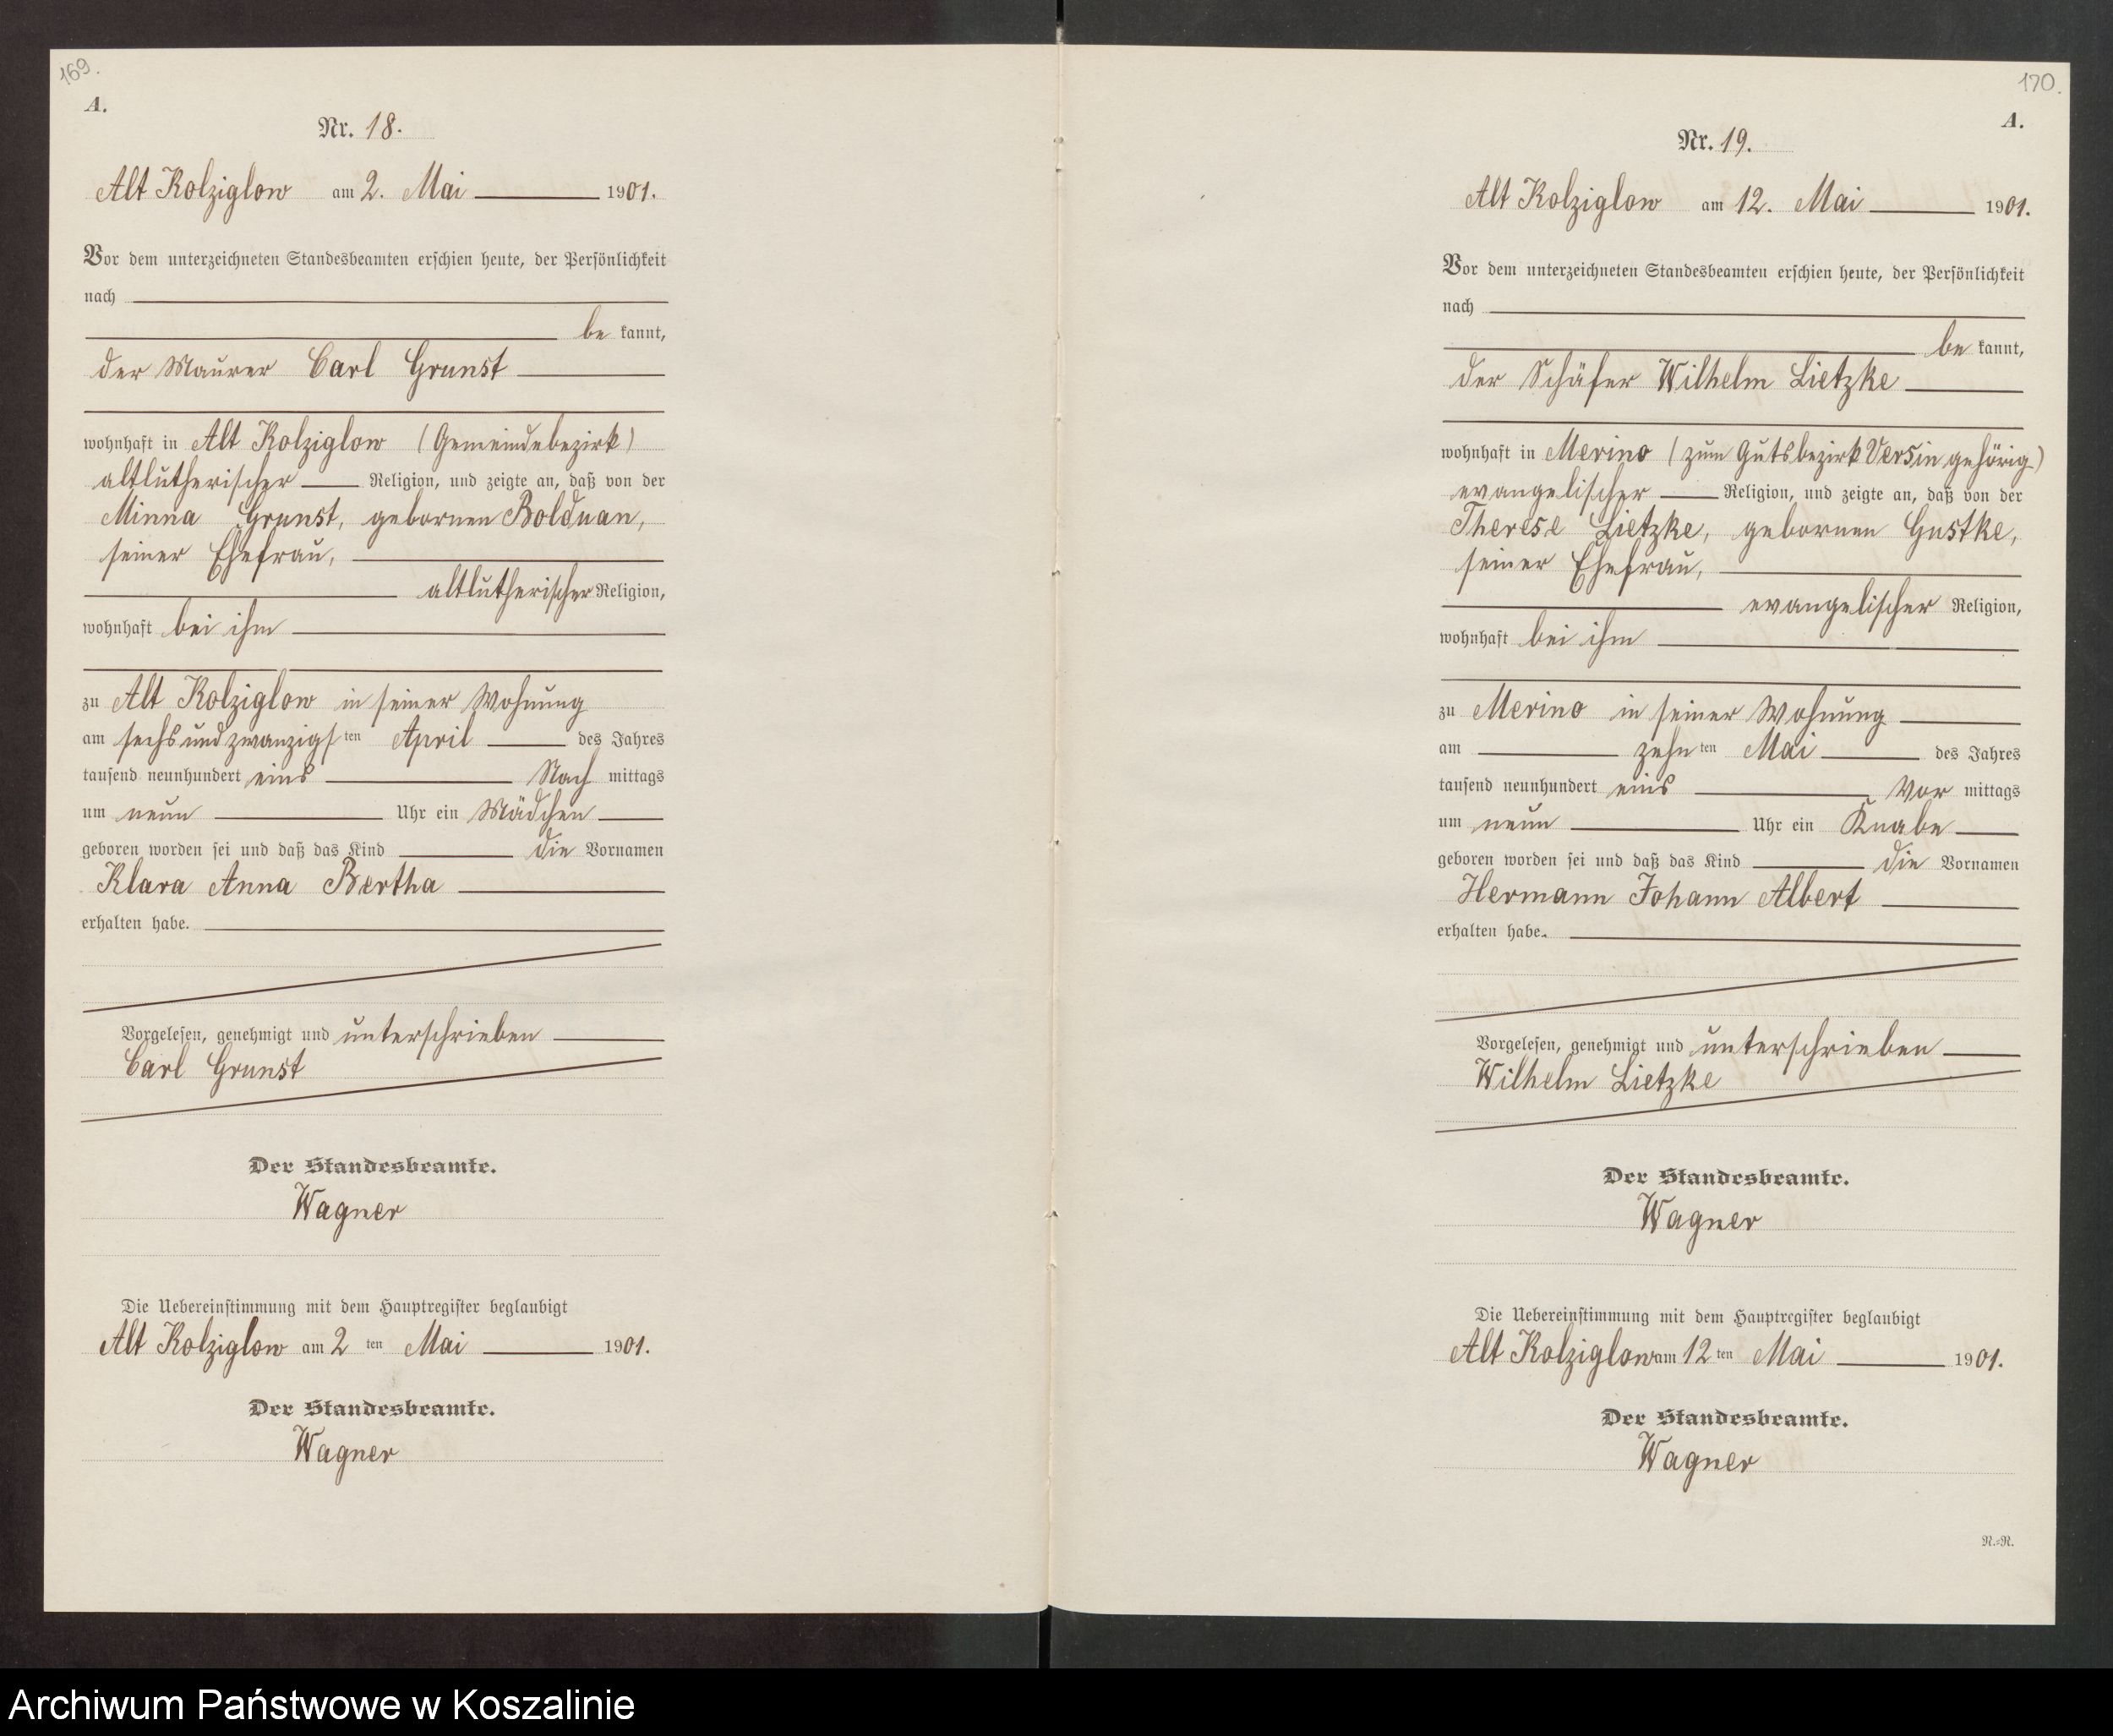 169.
A.
Nr. 18.
Alt Kolziglow am 2. Mai 1901.
Vor dem unterzeichneten Standesbeamten erschien heute, der Persönlichkeit
nach
be kannt,
der Maurer Carl Grunst
wohnhaft in Alt Kolziglow (Gemeindebezirk)
altlutherischer Religion, und zeigte an, daß von der
Minna Grunst, gebornen Bolduan,
seiner Ehefrau,
altlutherischer Religion,
wohnhaft bei ihm
zu Alt Kolziglow in seiner Wohnung
am sechsundzwanzigsten April des Jahres
tausend neunhundert eins Nach mittags
um neun Uhr ein Mädchen
geboren worden sei und daß das Kind die Vornamen
Klara Anna Bertha
erhalten habe.
Vorgelesen, genehmigt und unterschrieben
Carl Grunst
Der Standesbeamte.
Wagner
Die Uebereinstimmung mit dem Hauptregister beglaubigt
Alt Kolziglow am 2 ten Mai 1901.
Der Standesbeamte.
Wagner
170.
A.
Nr. 19.
Alt Kolziglow am 12. Mai 1901.
Vor dem unterzeichneten Standesbeamten erschien heute, der Persönlichkeit
nach
be kannt,
der Schäfer Wilhelm Lietzke
wohnhaft in Merino (zum Gutsbezirk Versin gehörig)
evangelischer Religion, und zeigte an, daß von der
Therese Lietzke, gebornen Gustke,
seiner Ehefrau,
evangelischer Religion,
wohnhaft bei ihm
zu Merino in seiner Wohnung
am zehn ten Mai des Jahres
tausend neunhundert eins Vor mittags
um neun Uhr ein Knabe
geboren worden sei und daß das Kind die Vornamen
Hermann Johann Albert
erhalten habe.
Vorgelesen, genehmigt und unterschrieben
Wilhelm Lietzke
Der Standesbeamte.
Wagner
Die Uebereinstimmung mit dem Hauptregister beglaubigt
Alt Kolziglow am 12 ten Mai 1901.
Der Standesbeamte.
Wagner
N.=N.
Archiwum Państwowe w Koszalinie